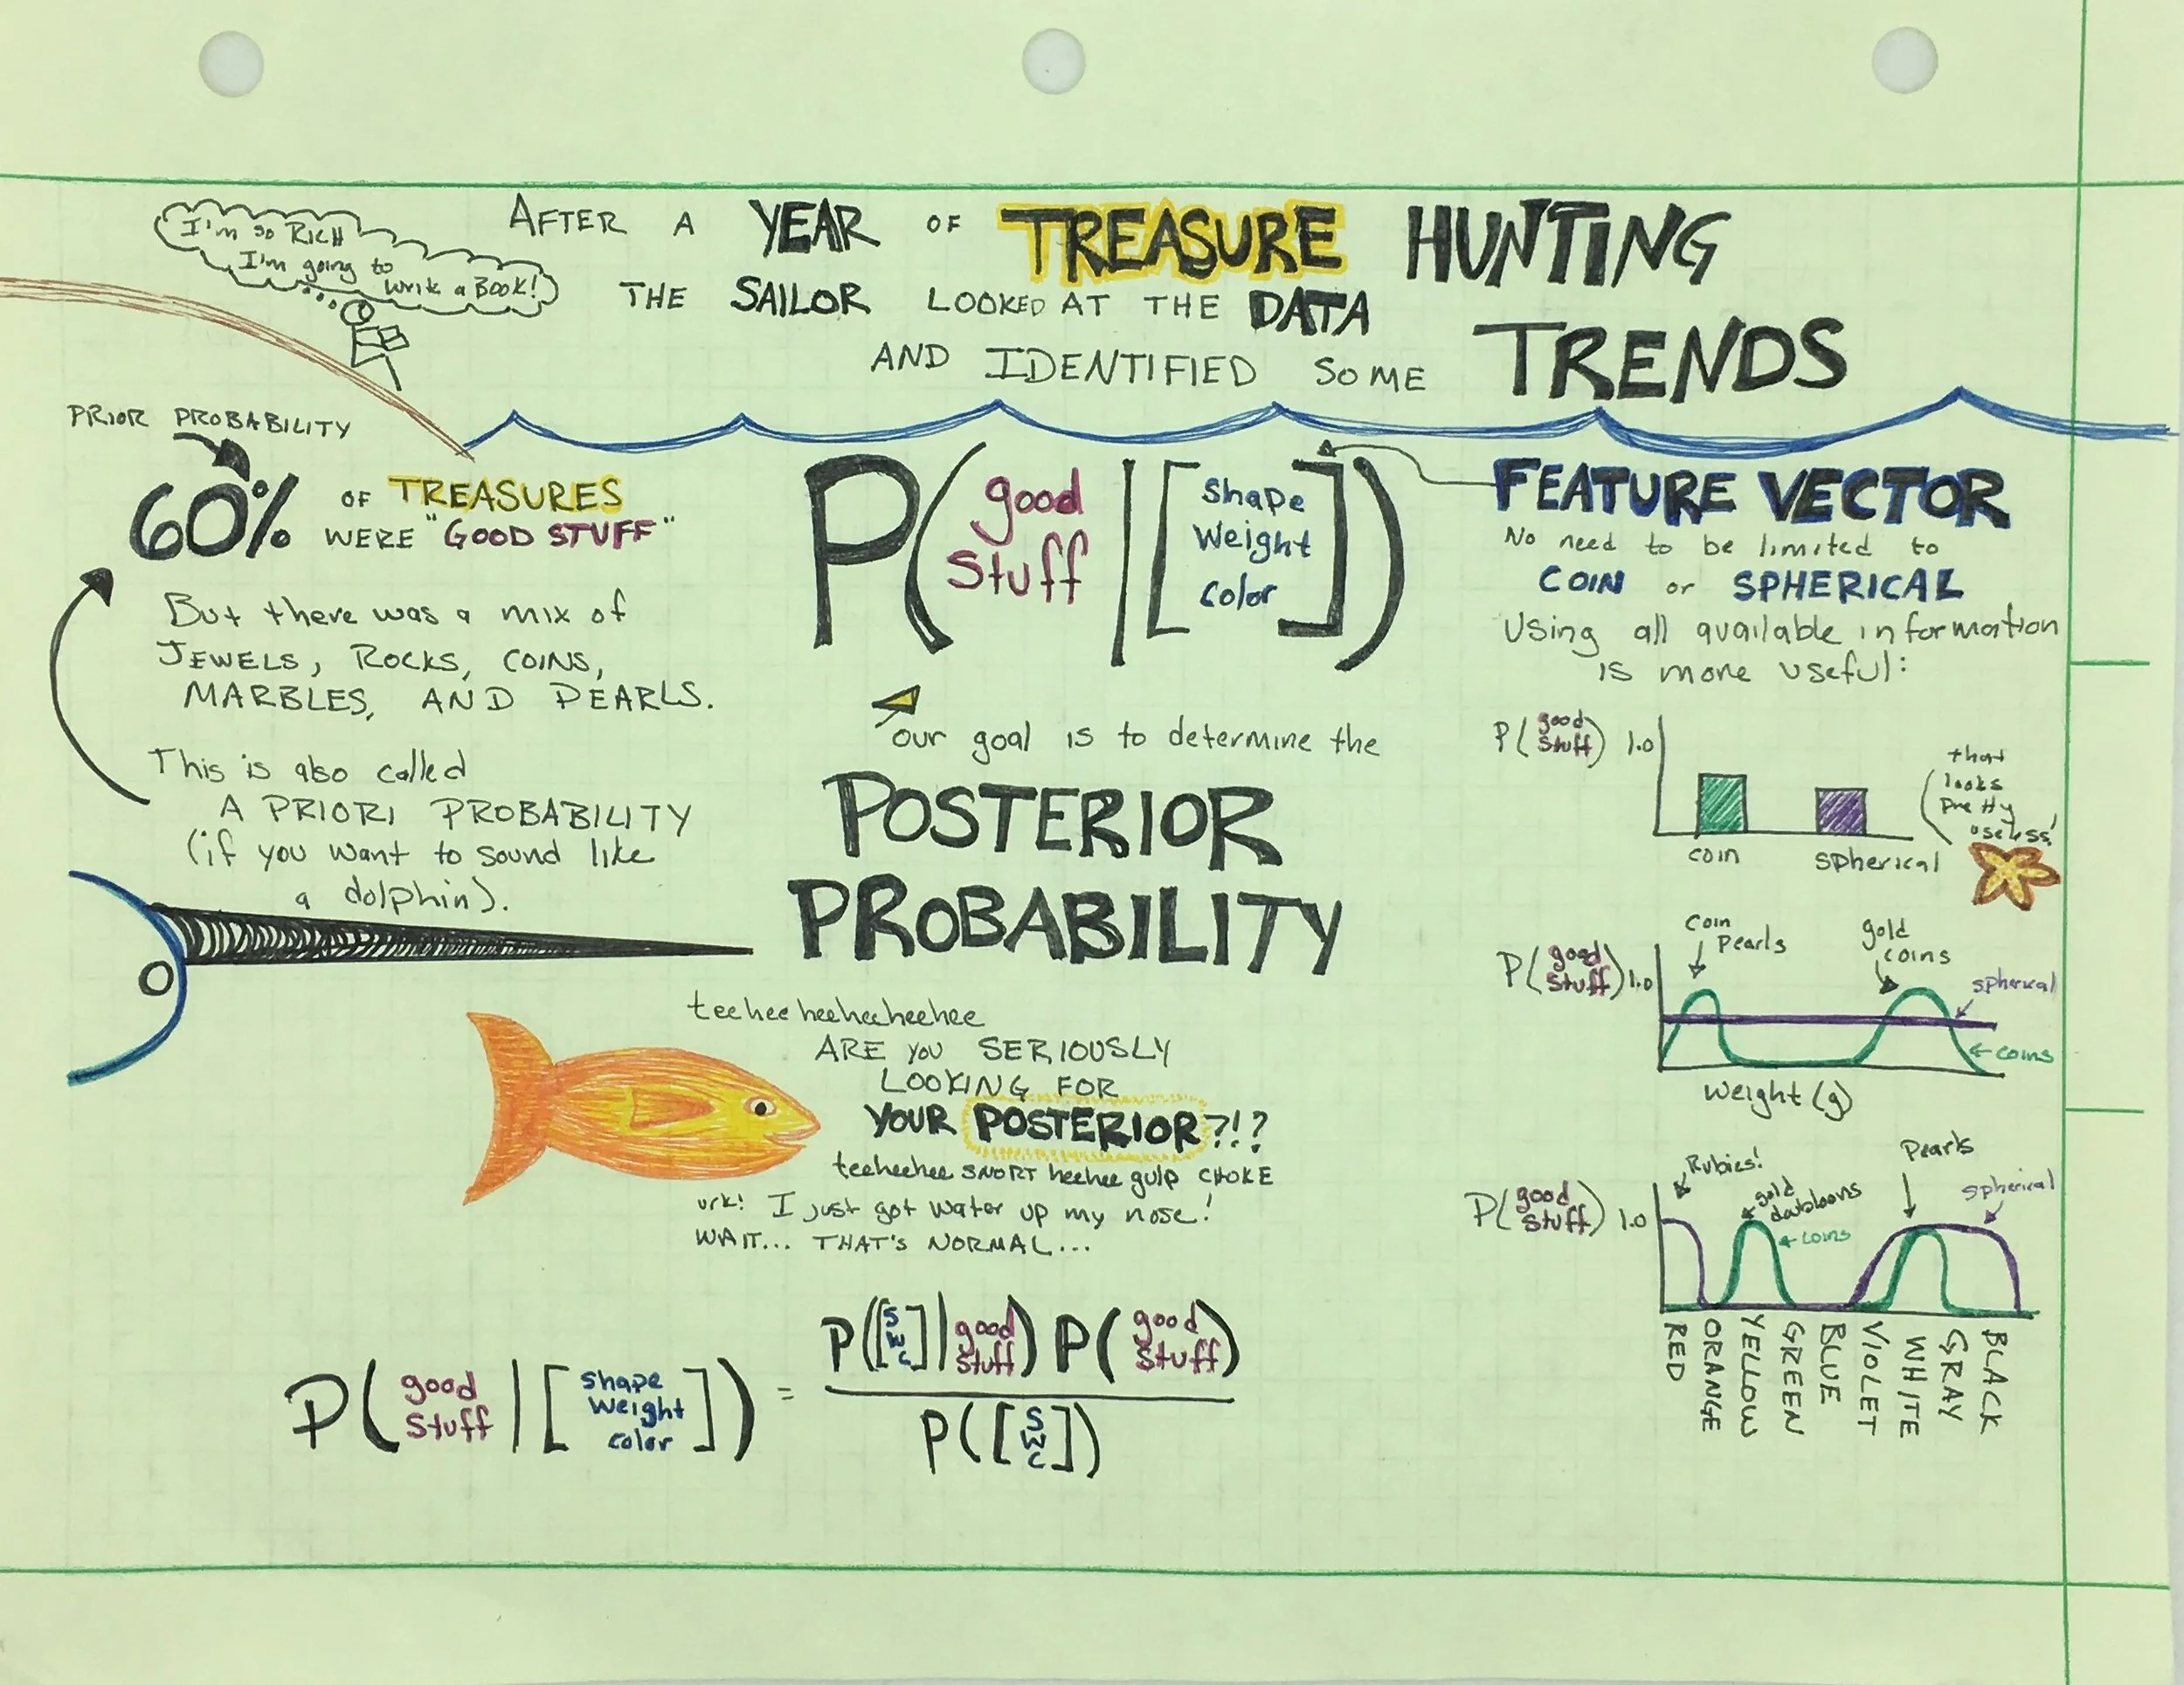 I'm so RICH
I'm going to
write a BOOK!
AFTER A YEAR OF TREASURE HUNTING
THE SAILOR LOOKED AT THE DATA
AND IDENTIFIED SOME TRENDS
PRIOR PROBABILITY
60% OF TREASURES
WERE "GOOD STUFF"
But there was a mix of
JEWELS, ROCKS, COINS,
MARBLES, AND PEARLS.
This is also called
A PRIORI PROBABILITY
(if you want to sound like
a dolphin).
P(good stuff | [Shape Weight Color])
our goal is to determine the
POSTERIOR
PROBABILITY
teehee heeheeheehee
ARE YOU SERIOUSLY
LOOKING FOR
YOUR POSTERIOR?!?
teeheehee SNORT heehee gulp CHOKE
urk! I just got water up my nose!
WAIT... THAT'S NORMAL...
P(good stuff | [Shape Weight Color]) = P([S W C] | good stuff) P(good stuff)
P([S W C])
FEATURE VECTOR
No need to be limited to
COIN or SPHERICAL
Using all available information
is more useful:
P(good stuff) 1.0
that
looks
pretty
useless!
coin spherical
coin
pearls
gold
coins
P(good stuff) 1.0
spherical
← coins
Weight (g)
Rubies!
gold
Pearls
spherical
P(good stuff) 1.0
← coins
RED
ORANGE
YELLOW
GREEN
BLUE
VIOLET
WHITE
GRAY
BLACK